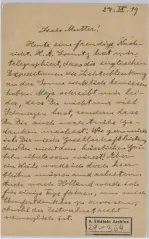 27. IX. 19
Liebe Mutter!
Heute eine freudige Nach-
richt. H. A. Lorentz hat mir
telegraphiert, dass die englischen
Expeditionen die Lichtablenkung
an der Sonne wirklich bewiesen
haben. Maja schreibt mir lei-
der, dass Du nicht nur viel
Schmerzen hast, sondern dass
Du Dir auch noch trübe Ge-
danken machst. Wie gern würde
ich Dir wieder Gesellschaft leisten,
dass Du nicht dem hässlichen Grü-
beln überlassen wärest! Aber
ein Weile werde ich doch hier
bleiben müssen und arbeiten.
Auch nach Holland werde ich
für einige Tage fahren, um mich
Ehrenfest dankbar zu erweisen,
obwohl der Zeitverlust recht
schmerzlich ist.
A. Einstein Archive